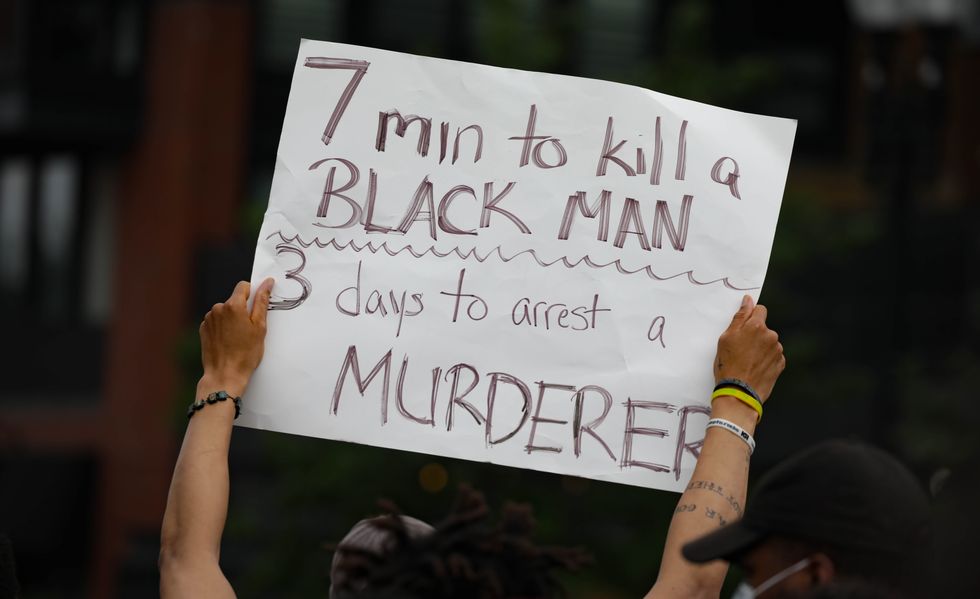 7 min to kill a
BLACK MAN
3 days to arrest a
MURDERER